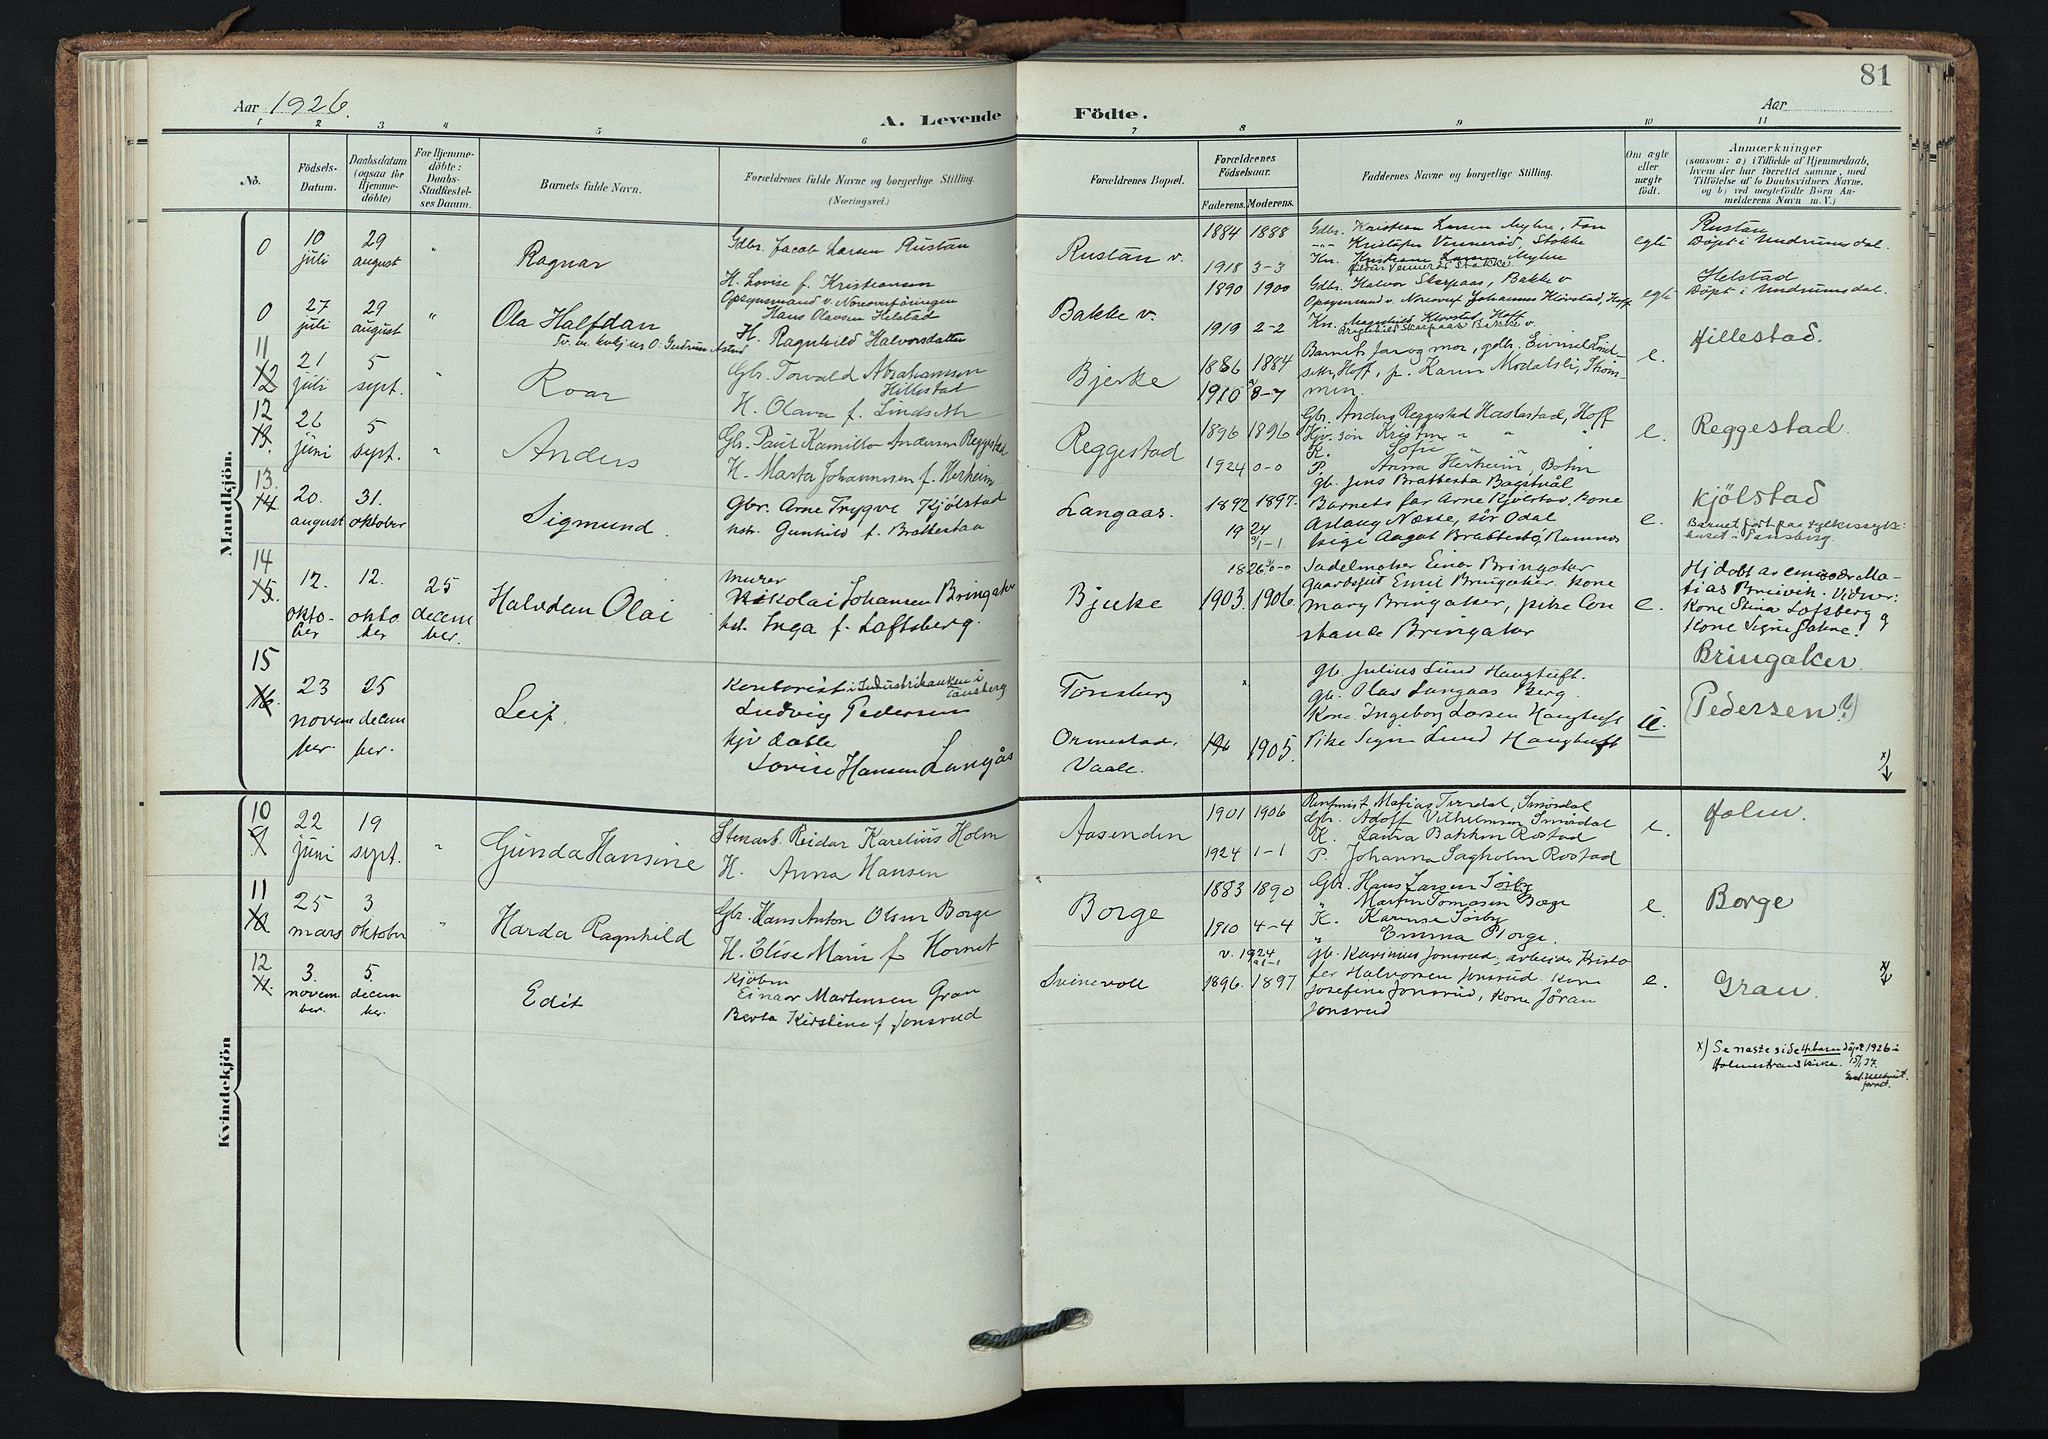 81
Aar 1926.
A. Levende Födte.
Aar
1 2 3 4 5 6 7 8 9 10 11
No.
Födsels-Datum.
Daabsdatum (ogsaa for Hjemme-döbte)
For Hjemme-döbte: Daabs-Stadfæstelses Datum.
Barnets fulde Navn.
Forældrenes fulde Navne og borgerlige Stilling. (Næringsvei.)
Forældrenes Bopæl.
Forældrenes Födselsaar.
Faderens. Moderens.
Faddernes Navne og borgerlige Stilling.
Om ægte eller uægte født.
Anmærkninger
(saasom: a) i Tilfælde af Hjemmedaab, hvem der har forrettet samme, med Tilföielse af to Daabsvidners Navne, og b) ved uægtefödte Börn Anmelderens Navn m. V.)
Mandkjön.
0
10 juli
29 august
"
Ragnar
Gdbr. Jacob Larsen Rustan
H. Lovise f. Kristiansen
Rustan v.
1884 1888
1918 3-3
Gdbr. Kristian Larsen Myhre, Fon
-"- Kristofer Vennerød, Stokke
Kn. Kristiane Larsen Myhre
Vennerød Stokke
egte
Rustan
Döpt i Undrumsdal.
0
27 juli
29 august
"
Ola Halfdan
Opsynsmand v. Noreoverföringen
Hans Olavsen Helstad
H. Ragnhild Halvorsdatter
Bakke v.
1890 1900
1919 2-2
Gdbr. Halvor Skarpaas, Bakke v
Opsynsmand v. Noreoverf Johannes Klövstad, Hoff
Kn. Magnhild Klovstad Hoff
Skarpaas Bakke v.
egte
Helstad
Döpt i Undrumsdal.
11
12
21 juli
5 sept.
"
Roar
Gbr. Torvald Abrahamsen
Hillestad
H. Olava f. Lindseth
Bjerke
1886 1884
1910 8-7
Barnets far og mor, gdbr. Eivind Lind-
seth, Hoff, p. Karen Modalsli, Strøm-
men.
e.
Hillestad.
12
13.
26 juni
5 sept.
"
Anders
Gbr. Paul Kamillo Andersen Reggestad
H. Marta Johannesen f. Herheim
Reggestad
1896 1896
1924 0-0
Gbr Anders Reggestad Haslestad, Hoff
Kristine " " "
K. Sofie " "
P. Anna Herheim, Botn
gb. Jens Brattestø Bogstvål
e.
Reggestad.
13.
14
20. august
31. oktober
Sigmund.
Gbr. Arne Trygve Kjølstad
hstr. Gunhild f. Brattestaa
Langaas.
1892 1897.
1924
1-1
Barnets far Arne Kjölstad, Kone
Aslaug Næsse, sör Odal
pige Aagot Brattestø, Ramnes
e.
Kjölstad
Barnet födt paa fylkessyke-
huset i Tønsberg.
14
15.
12. oktober
12. oktober
25 december.
Halvdan Olai
murer
Nikolai Johansen Bringaker
hst. Inga f. Loftsberg.
Bjerke
1826 0-0
1903. 1906.
Sadelmaker Einar Bringaker
Gaardsgut Emil Bringaker. Kone
Mary Bringaker, pike Con
stance Bringaker
e.
Hjdøbt av emissær Ma-
tias Breivik. Vidner:
Kone Stina Lofsberg og
Kone Signe
Bringaker.
15
16.
23 november.
25 december.
Leif.
Kontorist i Industribanken i
Tønsberg
Ludvig Pedersen
Lovise Hansen Langås
Tønsberg
Ormestad, Vaale.
1905.
gb. Julius Lund Haugtuft.
gb. Olav Langaas Berg
Kone. Ingeborg Larsen Haugtuft
Pike Signe Lund Haugtuft
u.
(Pedersen?)
x)
Kvindekjön
10
9
22 juni
19 sept.
"
Gunda Hansine
Stenarb. Reidar Karelius Holm
H. Anna Hansen
Aasenden
1901 1906
1924 1-1
Matias Smørdal
Gbr. Adolf Vilhelmsen Smørdal
K. Laura Bakken Rostad
P. Johanna Sagholm Rostad
e.
Holm.
11
10
25 mars
3 oktober
"
Harda Ragnhild
Gbr. Hans Anton Olsen Borge
H. Elise Marie f Hornet
Borge
1883 1890
1910 4-4
Gbr. Hans Larsen Sørby
" Martin Tomasen Bøge
K. Karense Sørby
" Emma Borge.
e.
Borge
12
11.
3. november.
5. december.
Edit
Kjöbm
Einar Martensen Gran
Berta Kirstine f Jonsrud
Svinevoll
v. 1924
1-1
1896. 1897
Gb. Karinius Jonsrud, arbeide Kristo
fer Halvorsen Jonsrud. Kone
Josefine Jonsrud, Kone Jöran
Jonsrud
e.
Gran.
x)
x) Se næste side 4 barn döpt 1926 i
Holmestrand kirke.